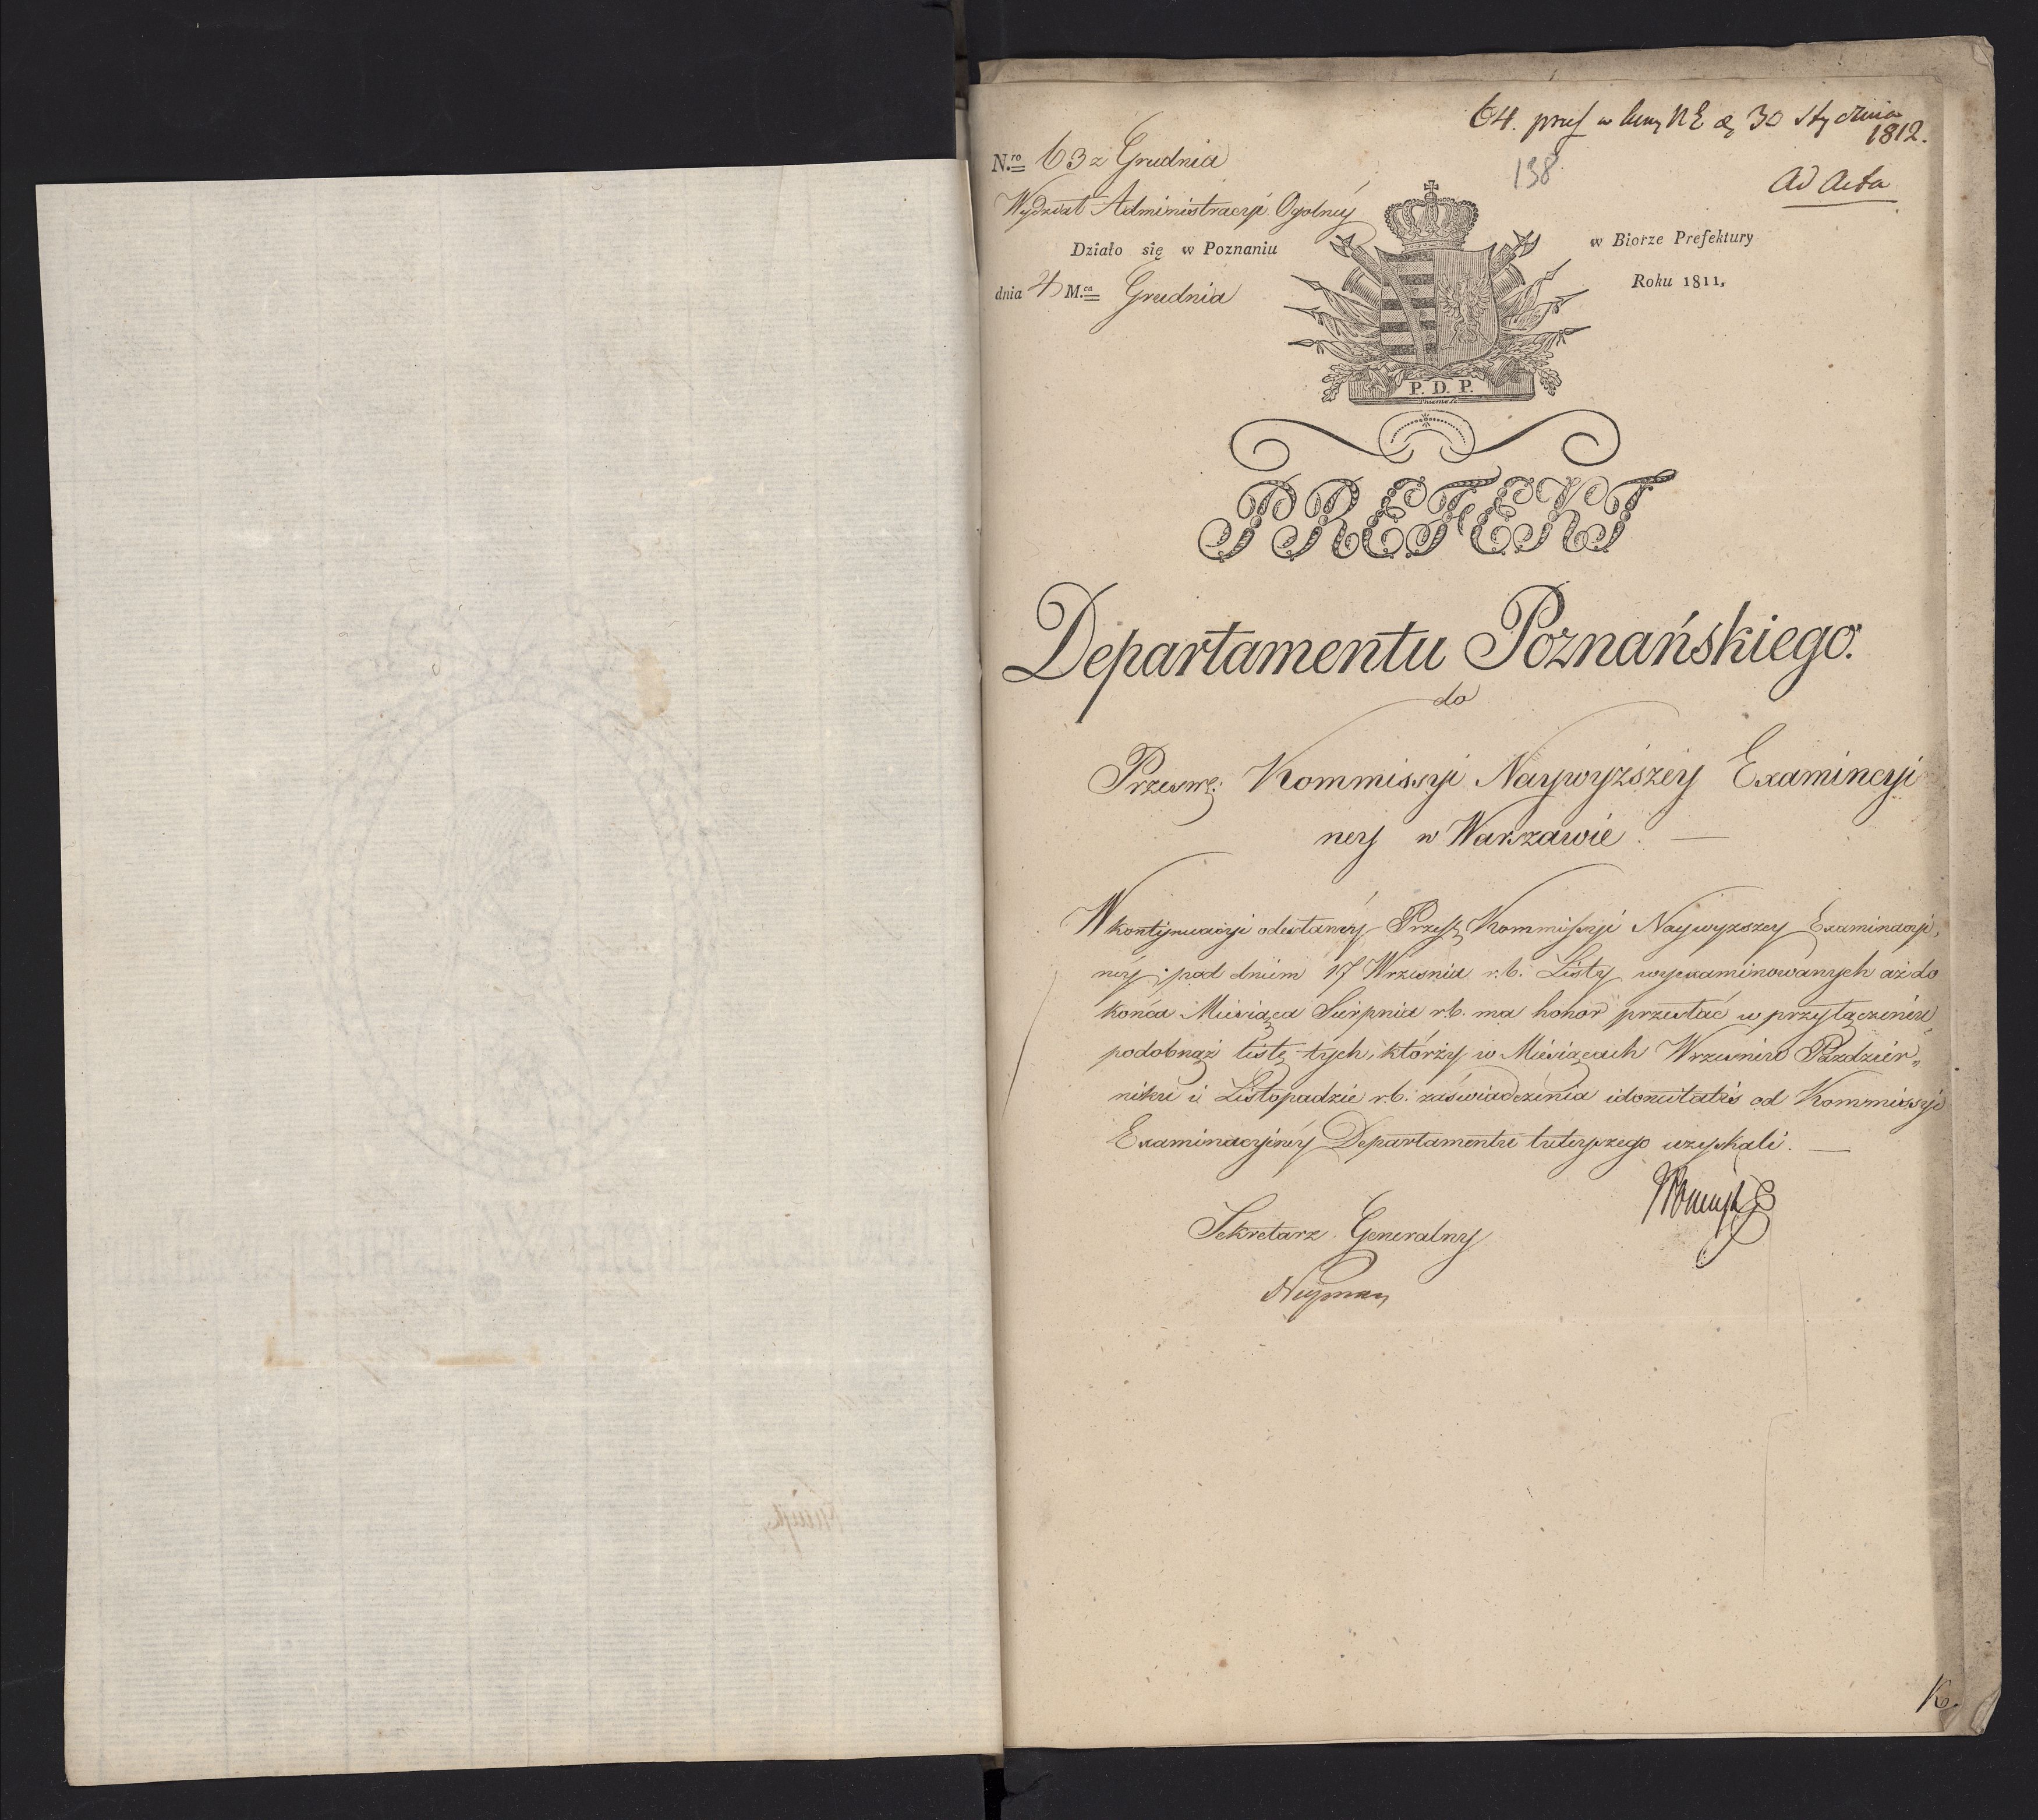 64. præs w Kom NE d 30 Stycznia
1812.
N.ro 63 z Grudnia
138
Ad Acta
Wydział Administracyi Ogolney
Działo się w Poznaniu
w Biorze Prefektury
dnia 4 M.ca Grudnia
Roku 1811,
P. D. P.
PREFEKT
Departamentu Poznańskiego.
do
Przeswę: Kommissyi Naywyższey Examincyi
ney w Warszawie. —
W kontynuacyi odesłanéy Prześ. Kommissyi Naywyższey Examinacyi„
néy pod dniem 17 Września r.b. Listy wyexaminowanych aż do
końca Miesiąca Sierpnia r.b. ma honor przesłać w przyłączeniu
podobnąż listę tych, którzy w Miesiącach Wrześniu Paździer„
niku i Listopadzie r.b. zaświadczenia idoneitatis od Kommissyi
Examinacyinéy Departamentu tuteyszego uzyskali. —
Sekretarz Generalny